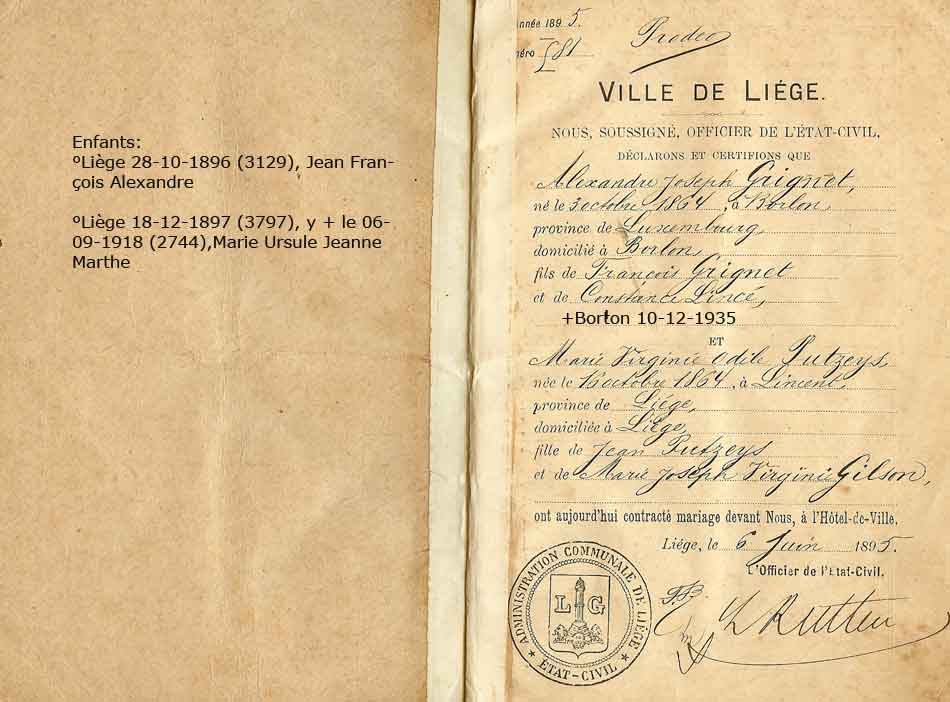 Enfants:
ºLiège 28-10-1896 (3129), Jean Fran-
çois Alexandre
ºLiège 18-12-1897 (3797), y + le 06-
09-1918 (2744),Marie Ursule Jeanne
Marthe
nnée 1895.
Prodeo
éro 581
VILLE DE LIÉGE.
NOUS, SOUSSIGNÉ, OFFICIER DE L'ÉTAT-CIVIL,
DÉCLARONS ET CERTIFIONS QUE
Alexandre Joseph Grignet,
né le 3 octobre 1864, à Borlon,
province de Luxembourg,
domicilié à Borlon,
fils de François Grignet
et de Constance Lincé,
+Borlon 10-12-1935
ET
Marie Virginie Odile Putzeys,
née le 16 octobre 1864, à Lincent,
province de Liége,
domiciliée à Liége,
fille de Jean Putzeys
et de Marie Joseph Virginie Gilson,
ont aujourd'hui contracté mariage devant Nous, à l'Hôtel-de-Ville.
Liége, le 6 Juin 1895.
L'Officier de l'Etat-Civil,
ADMINISTRATION COMMUNALE DE LIÈGE
LG
ETAT-CIVIL